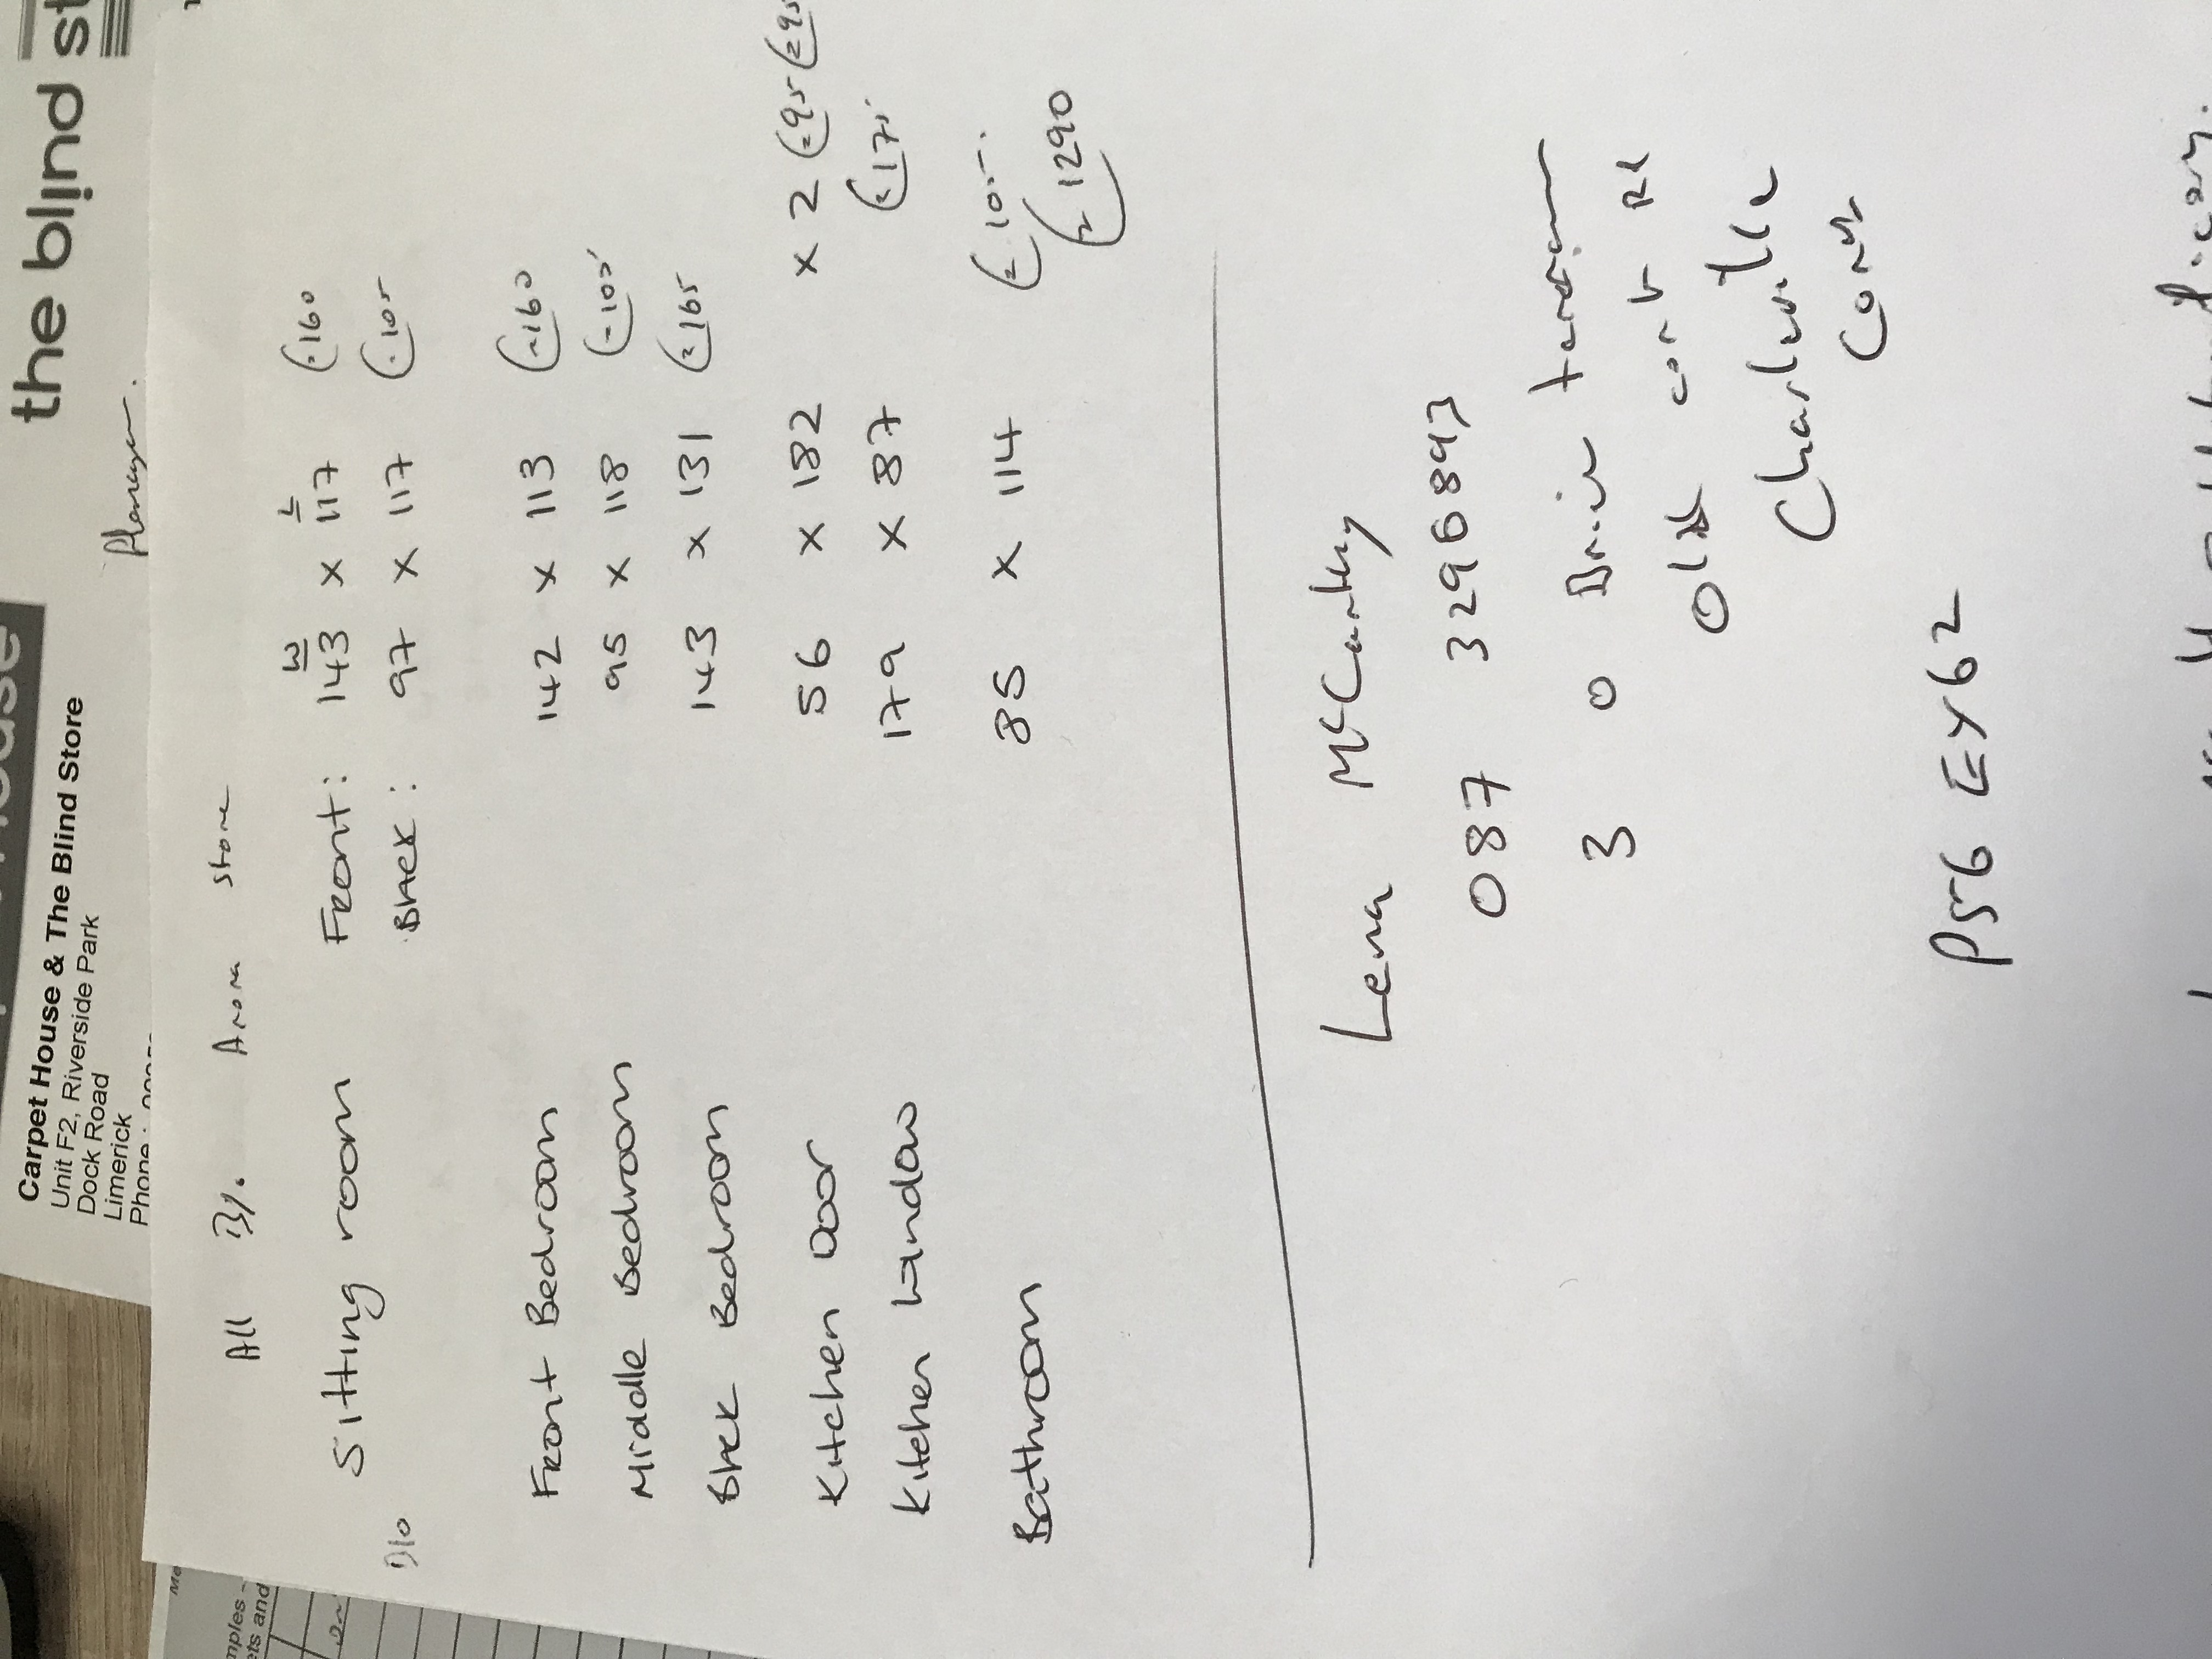 the blind st
Carpet House & The Blind Store
Unit F2, Riverside Park
Dock Road
Limerick
Phone:
All By. Arena Store
W L
Sitting room Front: 143 x 117 (-160
Back: 97 x 117 (-105
Front Bedroom 142 x 113 (-160
Middle Bedroom 95 x 118 (-105
Back Bedroom 143 x 131 (-165
Kitchen Door 56 x 182 x 2 (-95 (-95
Kitchen Window 179 x 87 (-175
Bathroom 85 x 114 (-105
(-1290
Lena McCarthy
087 3296893
3 O Brien terrace
Old Cork Rd
Charleville
Cork
P56 EY62
mples -
ets and